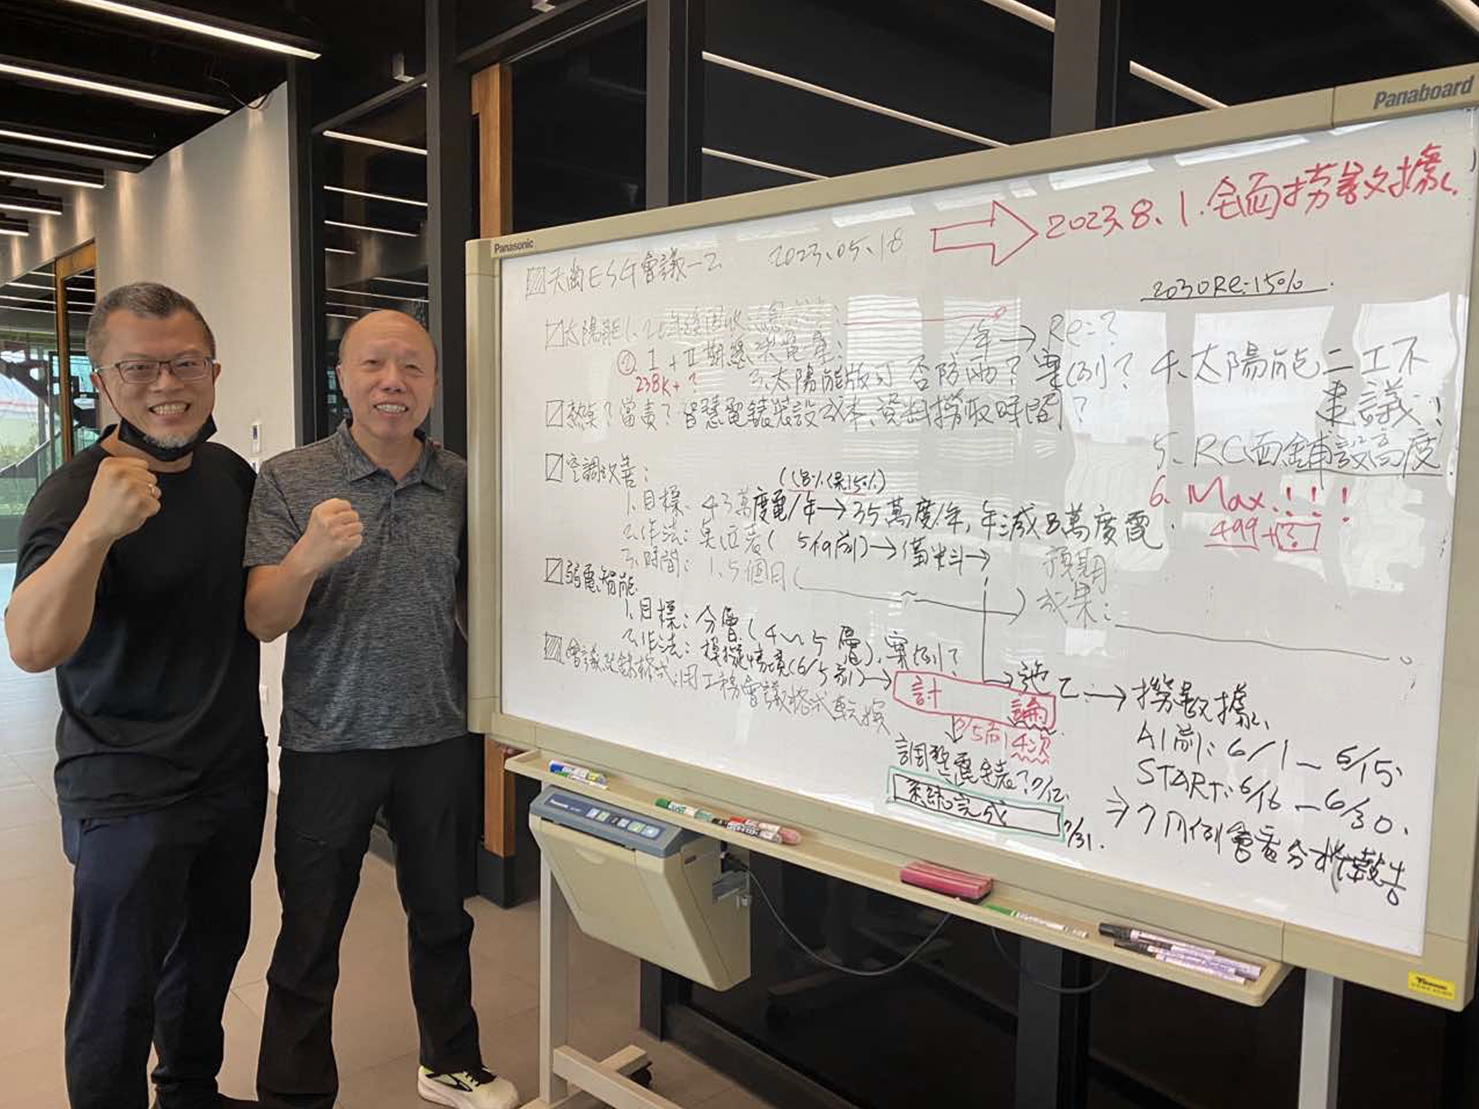 Panasonic
Panaboard
ESG會議-2 2023.05.18
2023.8.1.全面撈數據
2030Re:15%
太陽能1. :
/年→Re=?
② I+II期總裝電量:
238K+?
3.太陽能版可否防雨?案例?
4.太陽能二工不
建議!
熱泵? 當責? 智慧電錶裝設成本、資料撈取時間?
5. RC面鋪設高度
空調改善:
6. Max!!!
499+?
1.目標: 43萬度電/年→35萬度/年,年減8萬度電
2.作法: (5/19前)→備料→
預期
成果:
3.時間: 1.5個月
弱電智能
1.目標: 分層(4~5層),案例?
2.作法: 模擬情境(6/5前)→
討論
→施工→撈數據
會議記錄格式:用工務會議格式
7/5前 4次
AI前: 6/1-6/15
調整電錶?7/12
START: 6/16-6/30.
系統完成
7/31.
⇒7月例會看分析報告